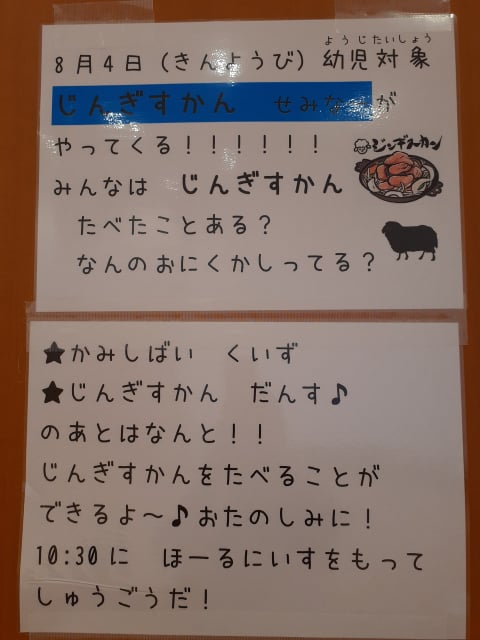 ようじたいしょう
8月4日(きんようび)幼児対象
じんぎすかん　せみなーが
やってくる!!!!!!
ジンギスカン
みんなは　じんぎすかん
たべたことある?
なんのおにくかしってる?
★かみしばい　くいず
★じんぎすかん　だんす♪
のあとはなんと!!
じんぎすかんをたべることが
できるよ～♪おたのしみに!
10:30に　ほーるにいすをもって
しゅうごうだ!